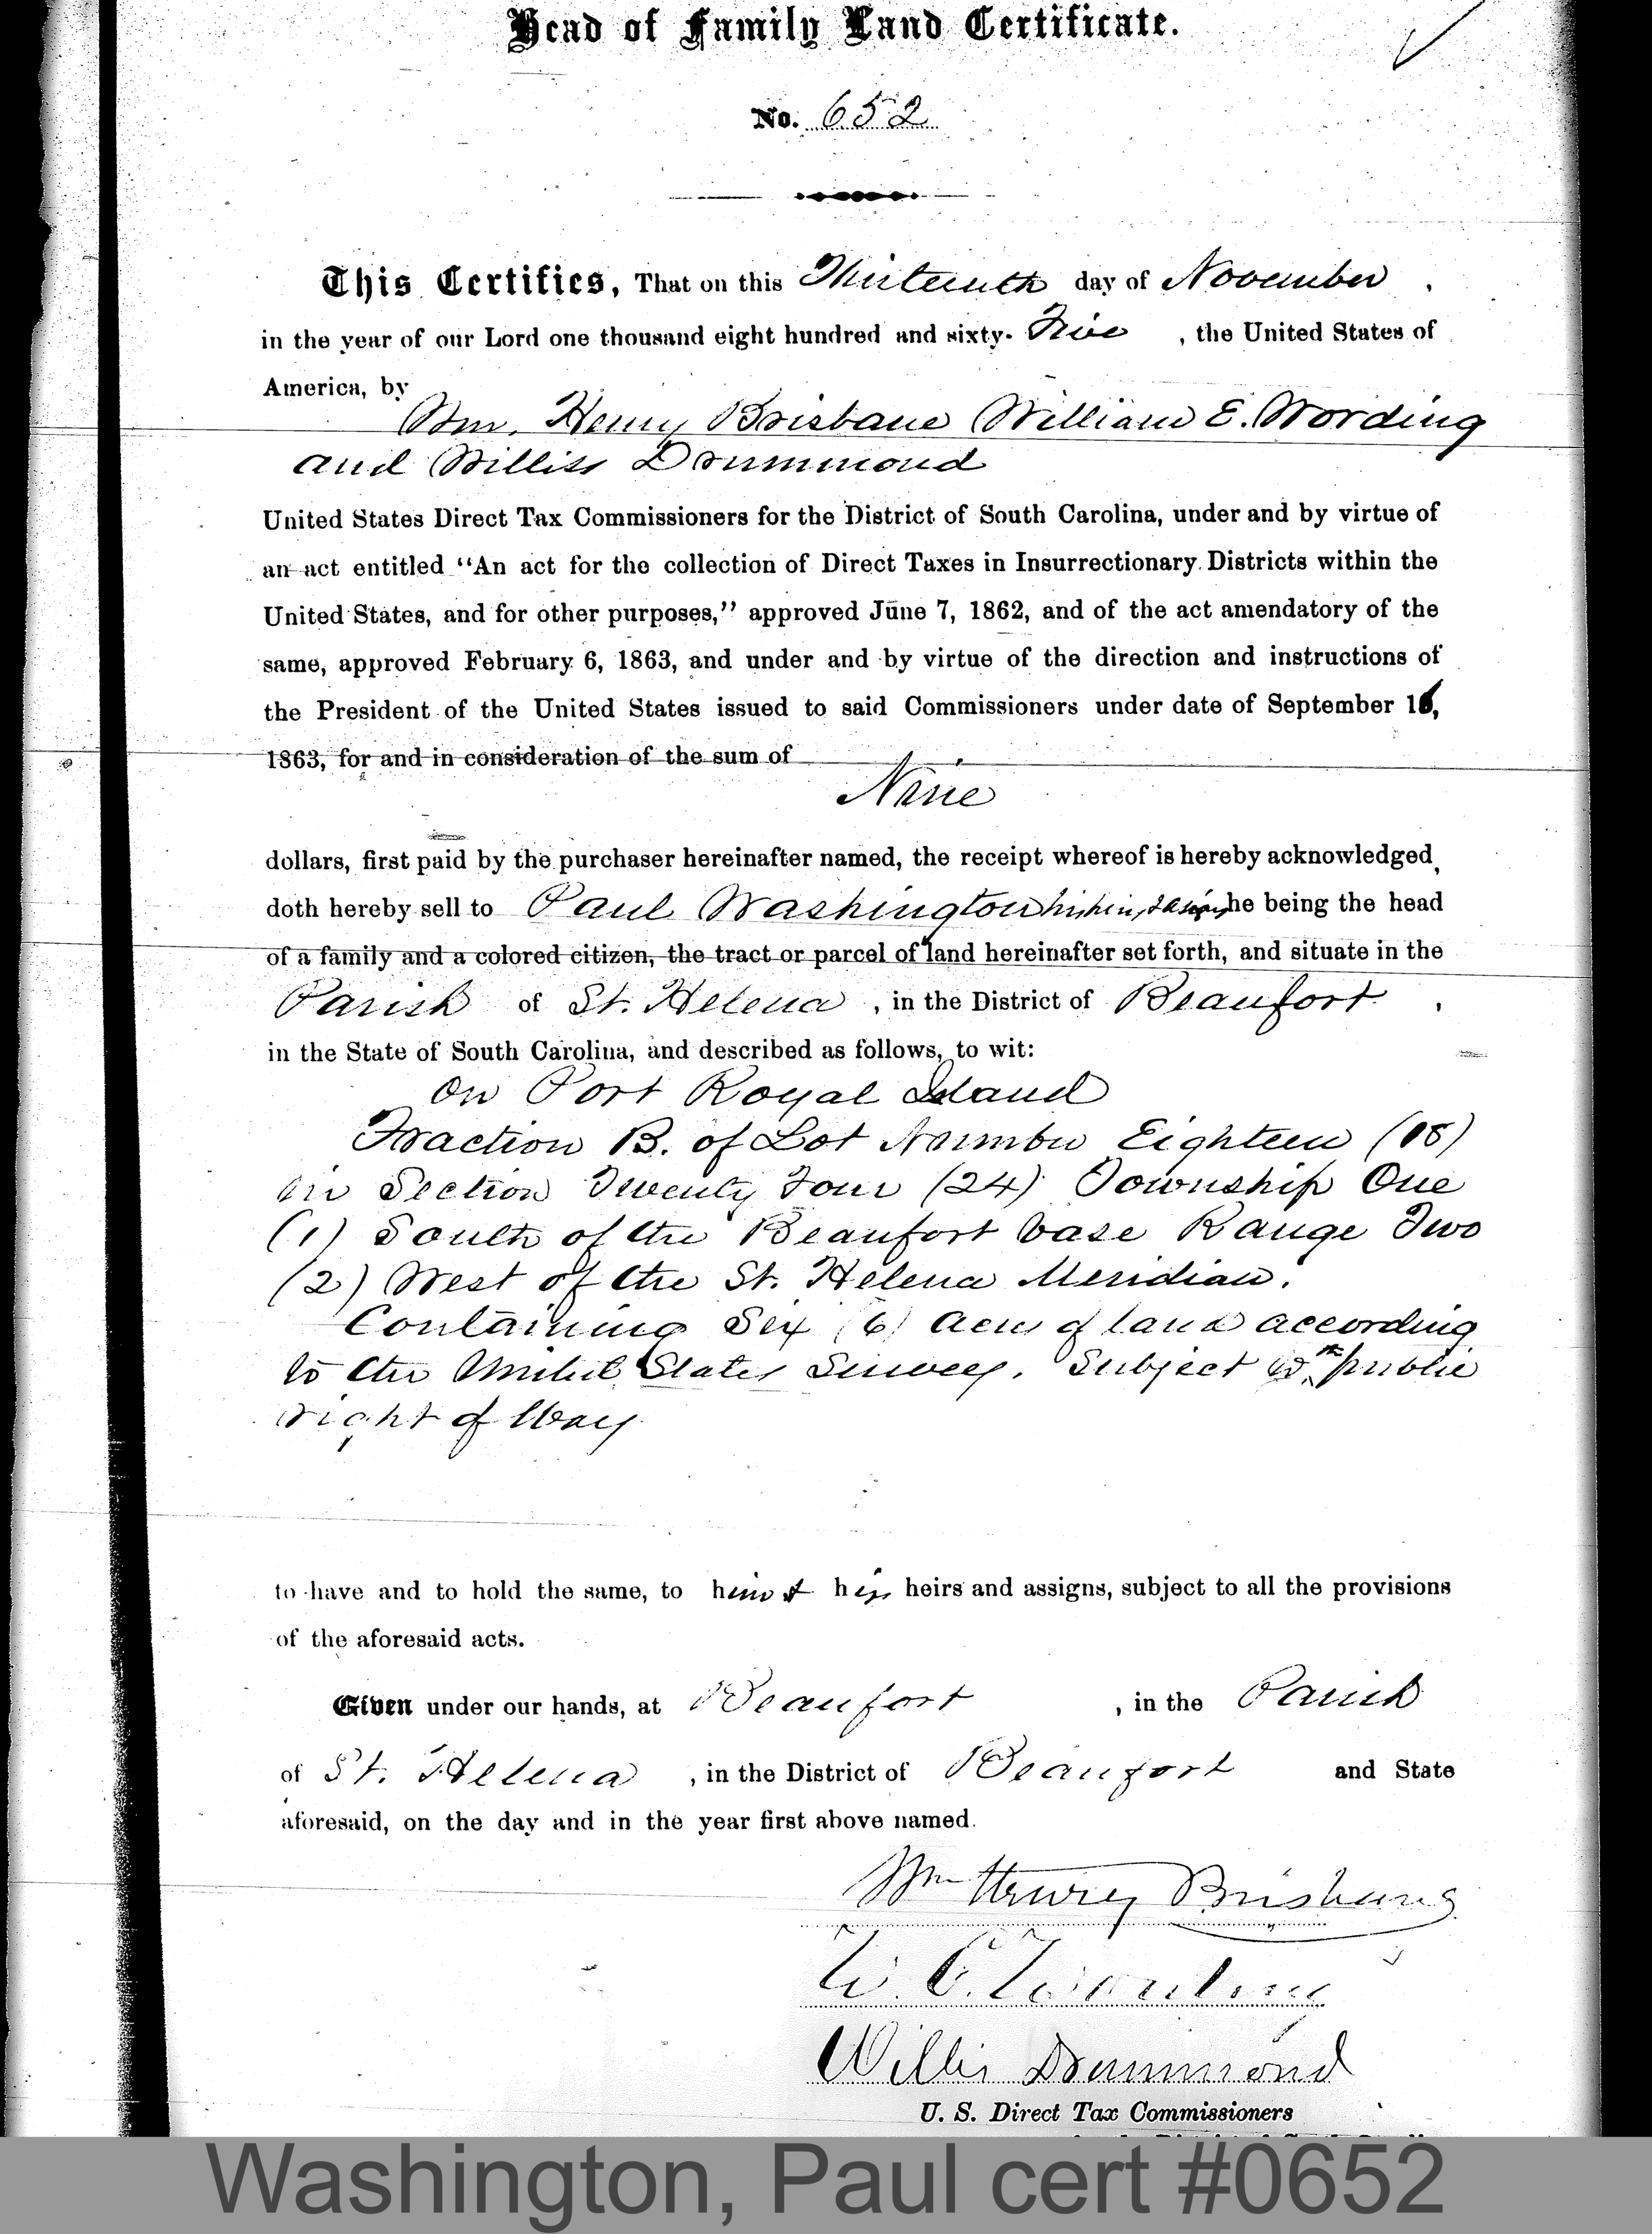 Head of Family Land Certificate.
No. 652
This Certifies, That on this Thirteenth day of November ,
in the year of our Lord one thousand eight hundred and sixty-Five , the United States of
America, by
Wm. Henry Brisbane William E. Wording
and Willis Drummond
United States Direct Tax Commissioners for the District of South Carolina, under and by virtue of
an act entitled "An act for the collection of Direct Taxes in Insurrectionary Districts within the
United States, and for other purposes," approved June 7, 1862, and of the act amendatory of the
same, approved February 6, 1863, and under and by virtue of the direction and instructions of
the President of the United States issued to said Commissioners under date of September 16,
1863, for and in consideration of the sum of
Nine
dollars, first paid by the purchaser hereinafter named, the receipt whereof is hereby acknowledged,
doth hereby sell to Paul Washington he being the head
of a family and a colored citizen, the tract or parcel of land hereinafter set forth, and situate in the
Parish of St. Helena , in the District of Beaufort ,
in the State of South Carolina, and described as follows, to wit:
On Port Royal Island
Fraction B. of Lot Number Eighteen (18)
in Section Twenty Four (24) Township One
(1) South of the Beaufort base Range Two
(2) West of the St. Helena Meridian.
Containing Six (6) Acres of land according
to the United States Survey. Subject to the public
right of Way
to have and to hold the same, to him & his heirs and assigns, subject to all the provisions
of the aforesaid acts.
Given under our hands, at Beaufort , in the Parish
of St. Helena , in the District of Beaufort and State
aforesaid, on the day and in the year first above named.
Wm Henry Brisbane
W. E. Wording
Willis Drummond
U. S. Direct Tax Commissioners
Washington, Paul cert #0652